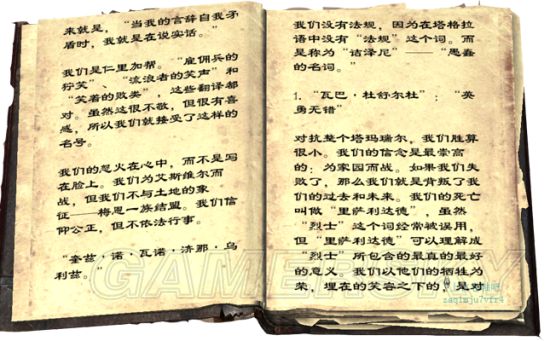 来就是，“当我的言辞自我矛
盾时，我就是在说实话。”
我们是仁里加帮。“雇佣兵的
狞笑”、“流浪者的笑声”和
“笑着的败类”，这些翻译都
对。虽然这很不敬，但很有喜
感，所以我们就接受了这样的
名号。
我们的怒火在心中，而不是写
在脸上。我们为艾斯维尔而
战，但我们不与土地的象
征——梅恩一族结盟。我们信
仰公正，但不依法行事。
“奎兹·诺·瓦诺·济那·乌
利兹。”
我们没有法规，因为在塔格拉
语中没有“法规”这个词。而
是称为“洁泽尼”——“愚蠢
的名词。”
1.“瓦巴·杜舒尔杜”：“英
勇无错”
对抗整个塔玛瑞尔，我们胜算
很小。我们的信念是最崇高
的：为家园而战。如果我们失
败了，那么我们就是背叛了我
们的过去和未来。我们的死亡
叫做“里萨利达德”，虽然
“烈士”这个词经常被误用，
但“里萨利达德”可以理解成
“烈士”所包含的最真的最好
的意义。我们以他们的牺牲为
荣，埋在的笑容之下的，是对
GAMERSKY
zaqimju7vfr4